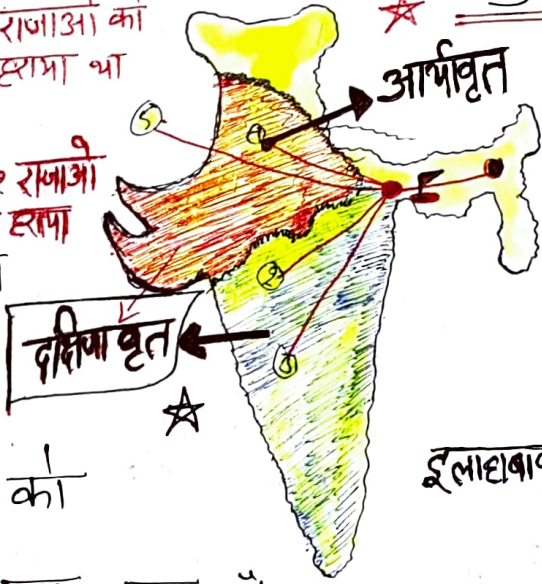 राजाओ का
हराया था
आर्यावृत
राजाओ
हराया
5
1
2
3
दक्षिणा वृत
को
इलाहाबा